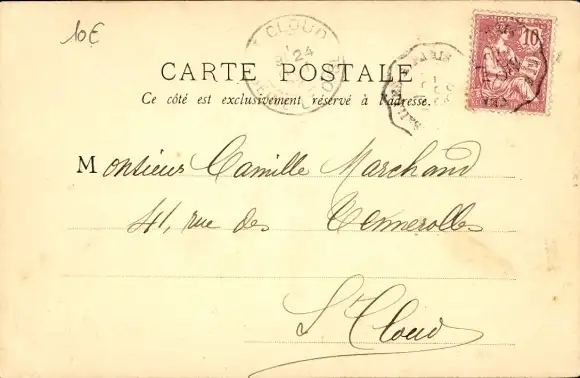 10€
CLOUD
24
10
PARIS
CARTE POSTALE
Ce côté est exclusivement réservé à l'adresse.
Monsieur Camille Marchand
41, rue des Tennerolles
St Cloud